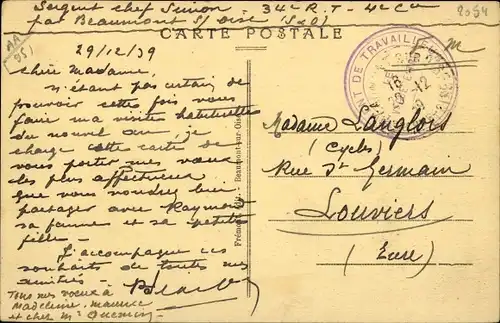 Sergent chef Simon - 34e R.T - 4e Cie
par Beaumont S/ Oise (S&O)
CARTE POSTALE
2094
AA
951
29/12/39
chère Madame,
N'étant pas certain de
pouvoir cette fois vous
faire ma visite habituelle
du nouvel an, je
charge cette carte de
vous porter mes vœux
les plus affectueux
que vous voudrez bien
partager avec Raymond
sa femme et sa petite
fille -
J'accompagne ces
souhaits de toutes mes
amitiés -
Tous mes vœux à
Madeleine, Maurice
et chez Mr
F. M
Madame Langlois
(Cycles)
Rue St Germain
Louviers
(Eure)
Beaumont-sur-Oise
DE TRAVAILLEURS